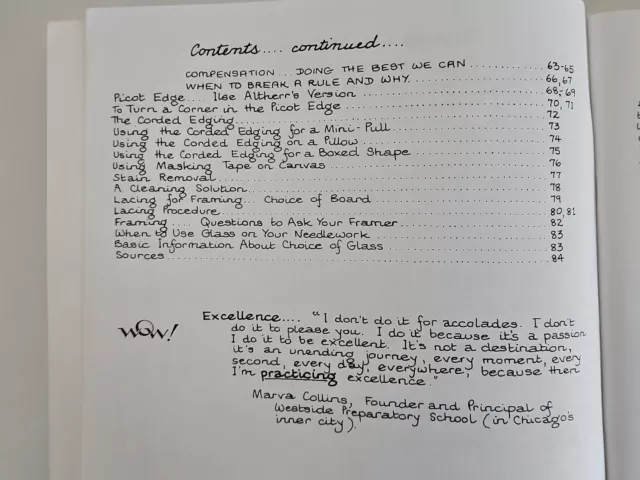 Contents.... continued....
COMPENSATION ... DOING THE BEST WE CAN .......... 63-65
WHEN TO BREAK A RULE AND WHY .......... 66,67
Picot Edge.... Ilse Altherr's Version .......... 68,-69
To Turn a Corner in the Picot Edge .......... 70, 71
The Corded Edging .......... 72
Using the Corded Edging for a Mini-Pull .......... 73
Using the Corded Edging on a Pillow .......... 74
Using the Corded Edging for a Boxed Shape .......... 75
Using Masking Tape on Canvas .......... 76
Stain Removal .......... 77
A Cleaning Solution .......... 78
Lacing for Framing... Choice of Board .......... 79
Lacing Procedure .......... 80,81
Framing .... Questions to Ask Your Framer .......... 82
When to Use Glass on Your Needlework .......... 83
Basic Information About Choice of Glass .......... 83
Sources .......... 84
WOW!
Excellence.... "I don't do it for accolades. I don't
do it to please you. I do it because it's a passion
I do it to be excellent. It's not a destination,
it's an unending journey, every moment, every
second, every day, everywhere, because then
I'm practicing excellence."
Marva Collins, Founder and Principal of
Westside Preparatory School (in Chicago's
inner city).